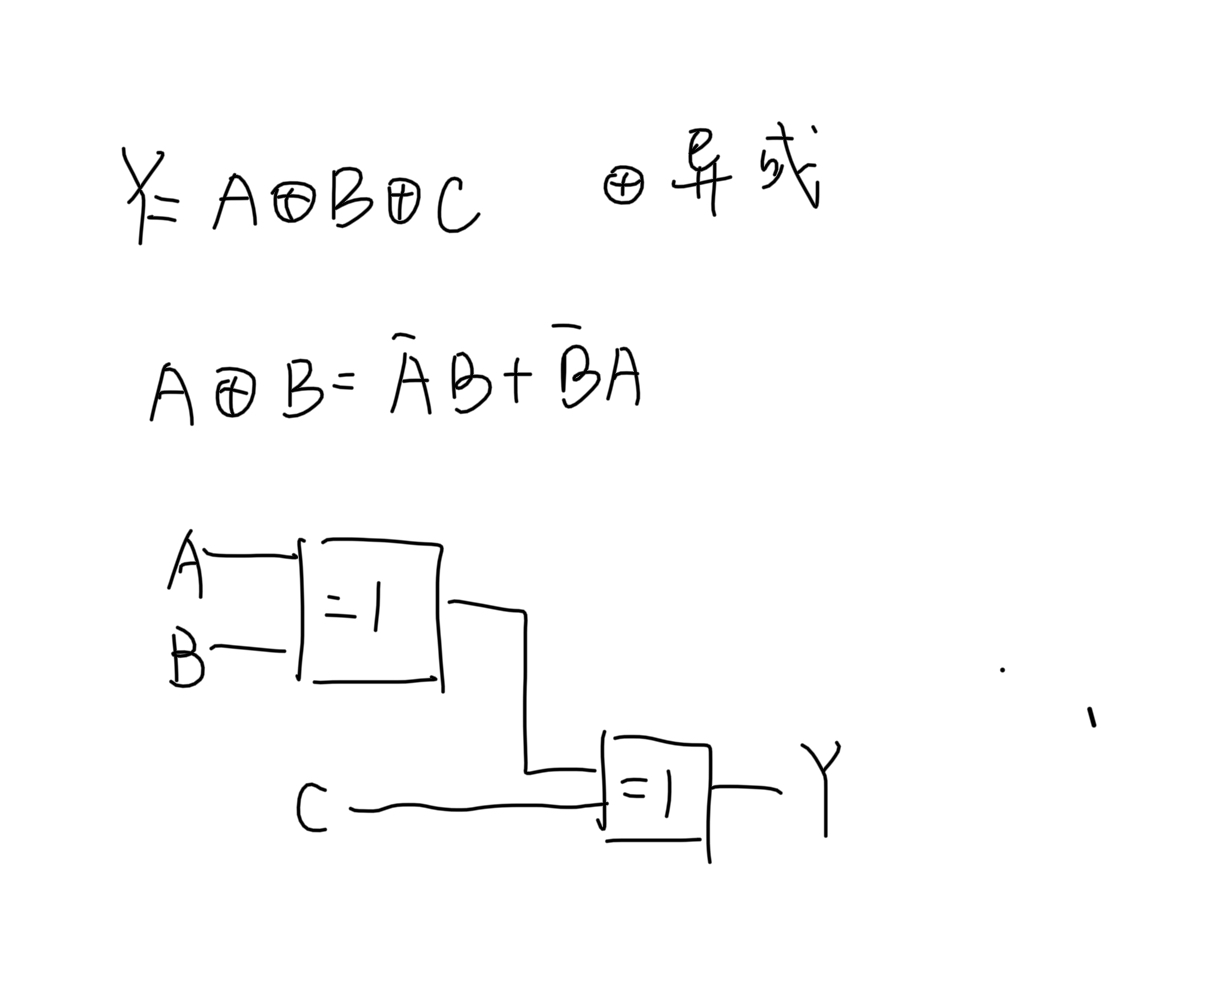 Y= A⊕B⊕C ⊕异或
A⊕B= A̅B+B̅A
A
=1
B
C
=1
Y